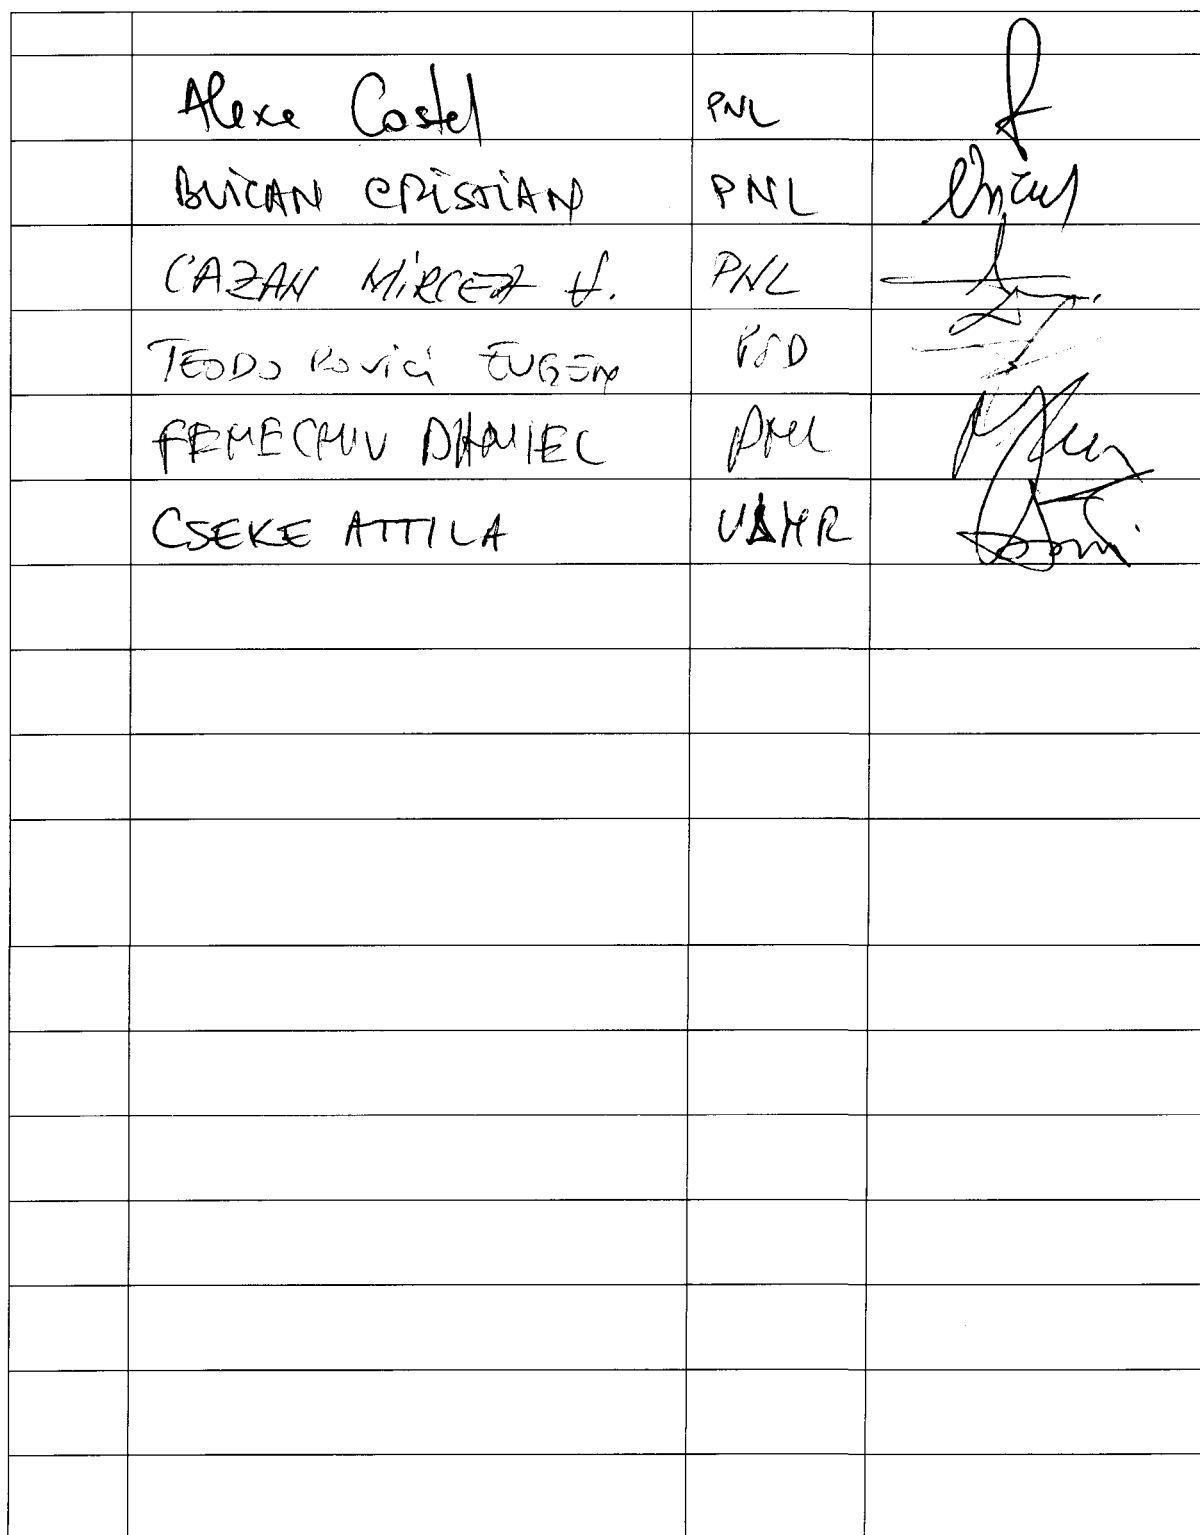 Alexe Costel PNL
BUICAN CRISTIAN PNL
CAZAN MIRCEA V. PNL
TEODOROVICI EUGEN PSD
DANIEL PNL
CSEKE ATTILA UDMR